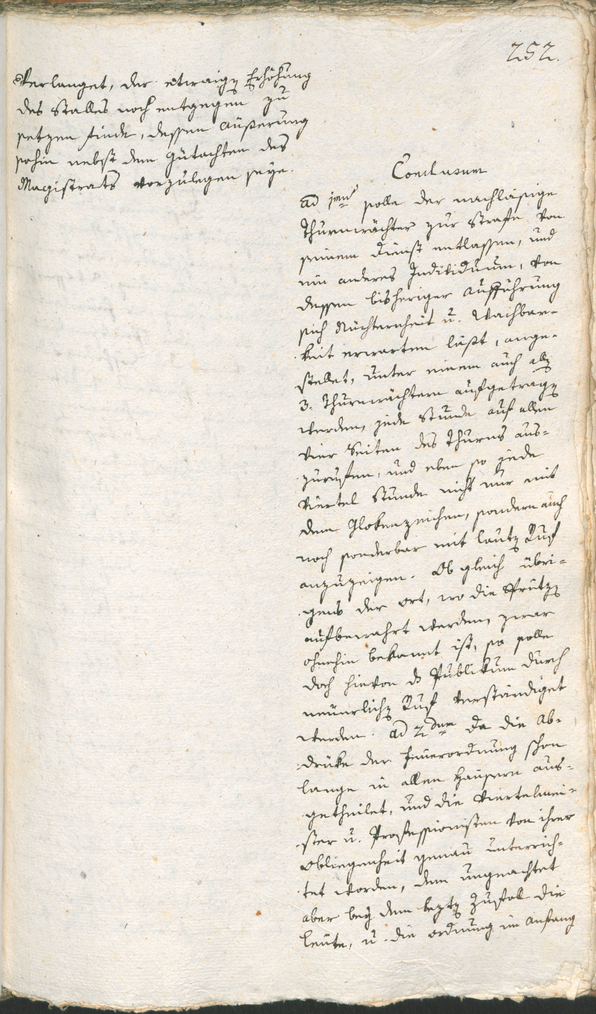 252.
verlanget, der etwaigen Erhöhung
des Stalles noch entgegen zu
setzen finde, dessen Äußerung
sohin nebst dem Gutachten des
Magistrats vorzulegen seye.
Conclusum
ad 1mum solle der nachläßige
Thurnwächter zur Strafe von
seinem Dienst entlassen, und
ein anderes Individuum, von
dessen bisheriger Aufführung
sich Nüchternheit u. Wachbar-
keit erwarten läßt, ange-
stellet, unter einem auch allen
3. Thurnwächtern aufgetragen
werden, jede Stunde auf allen
vier Seiten des Thurns aus-
zurufen, und eben so jede
Viertel Stunde nicht nur mit
dem Glokenzeichen, sondern auch
noch sonderbar mit lauten Ruf
anzuzeigen. Ob gleich übri-
gens der Ort, wo die Spritzen
aufbewahrt werden, zwar
ohnehin bekannt ist, so solle
doch hievon das Publikum durch
neuerlichen Ruf verständiget
werden. ad 2dum Da die Ab-
drüke der Feuerordnung schon
lange in allen Häusern aus-
getheilet, und die Viertelmei-
ster u. Professionisten von ihrer
Obliegenheit genau unterrich-
tet worden, dem ungeachtet
aber bey dem lezten Zufall die
Leute, u. die Ordnung im Anfang